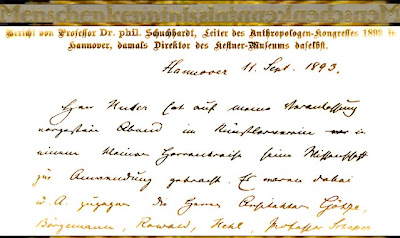 Bericht von Professor Dr. phil. Schuchhardt, Leiter des Anthropologen-Kongresses 189 in
Hannover, damals Direktor des Kestner-Museums daselbst.
Hannover 11. Sept. 1893.
Herr Huter hat auf meine Veranlassung
vorgestern Abend im Künstlerverein in
einem kleinen Herrenkreise seine Wissenschaft
zur Anwendung gebracht. Es waren dabei
u. A. zugegen die Herren Architekten Götze,
Börgemann, Rowald, Hehl, Professor Schaper